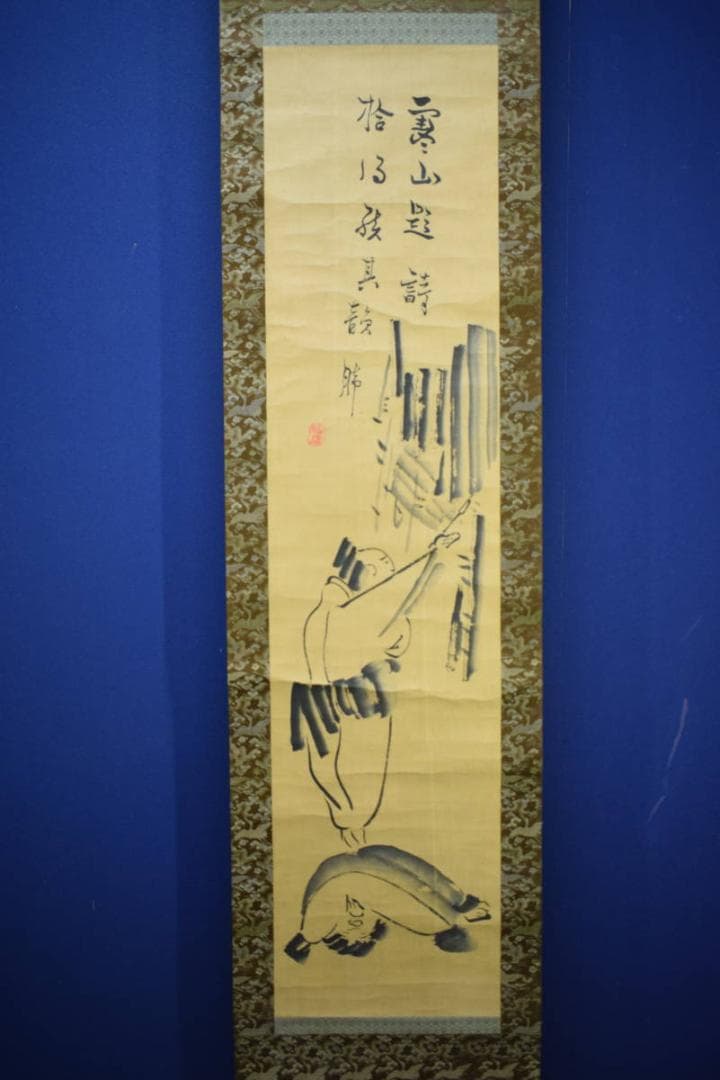 寒山題詩
拾得其韻